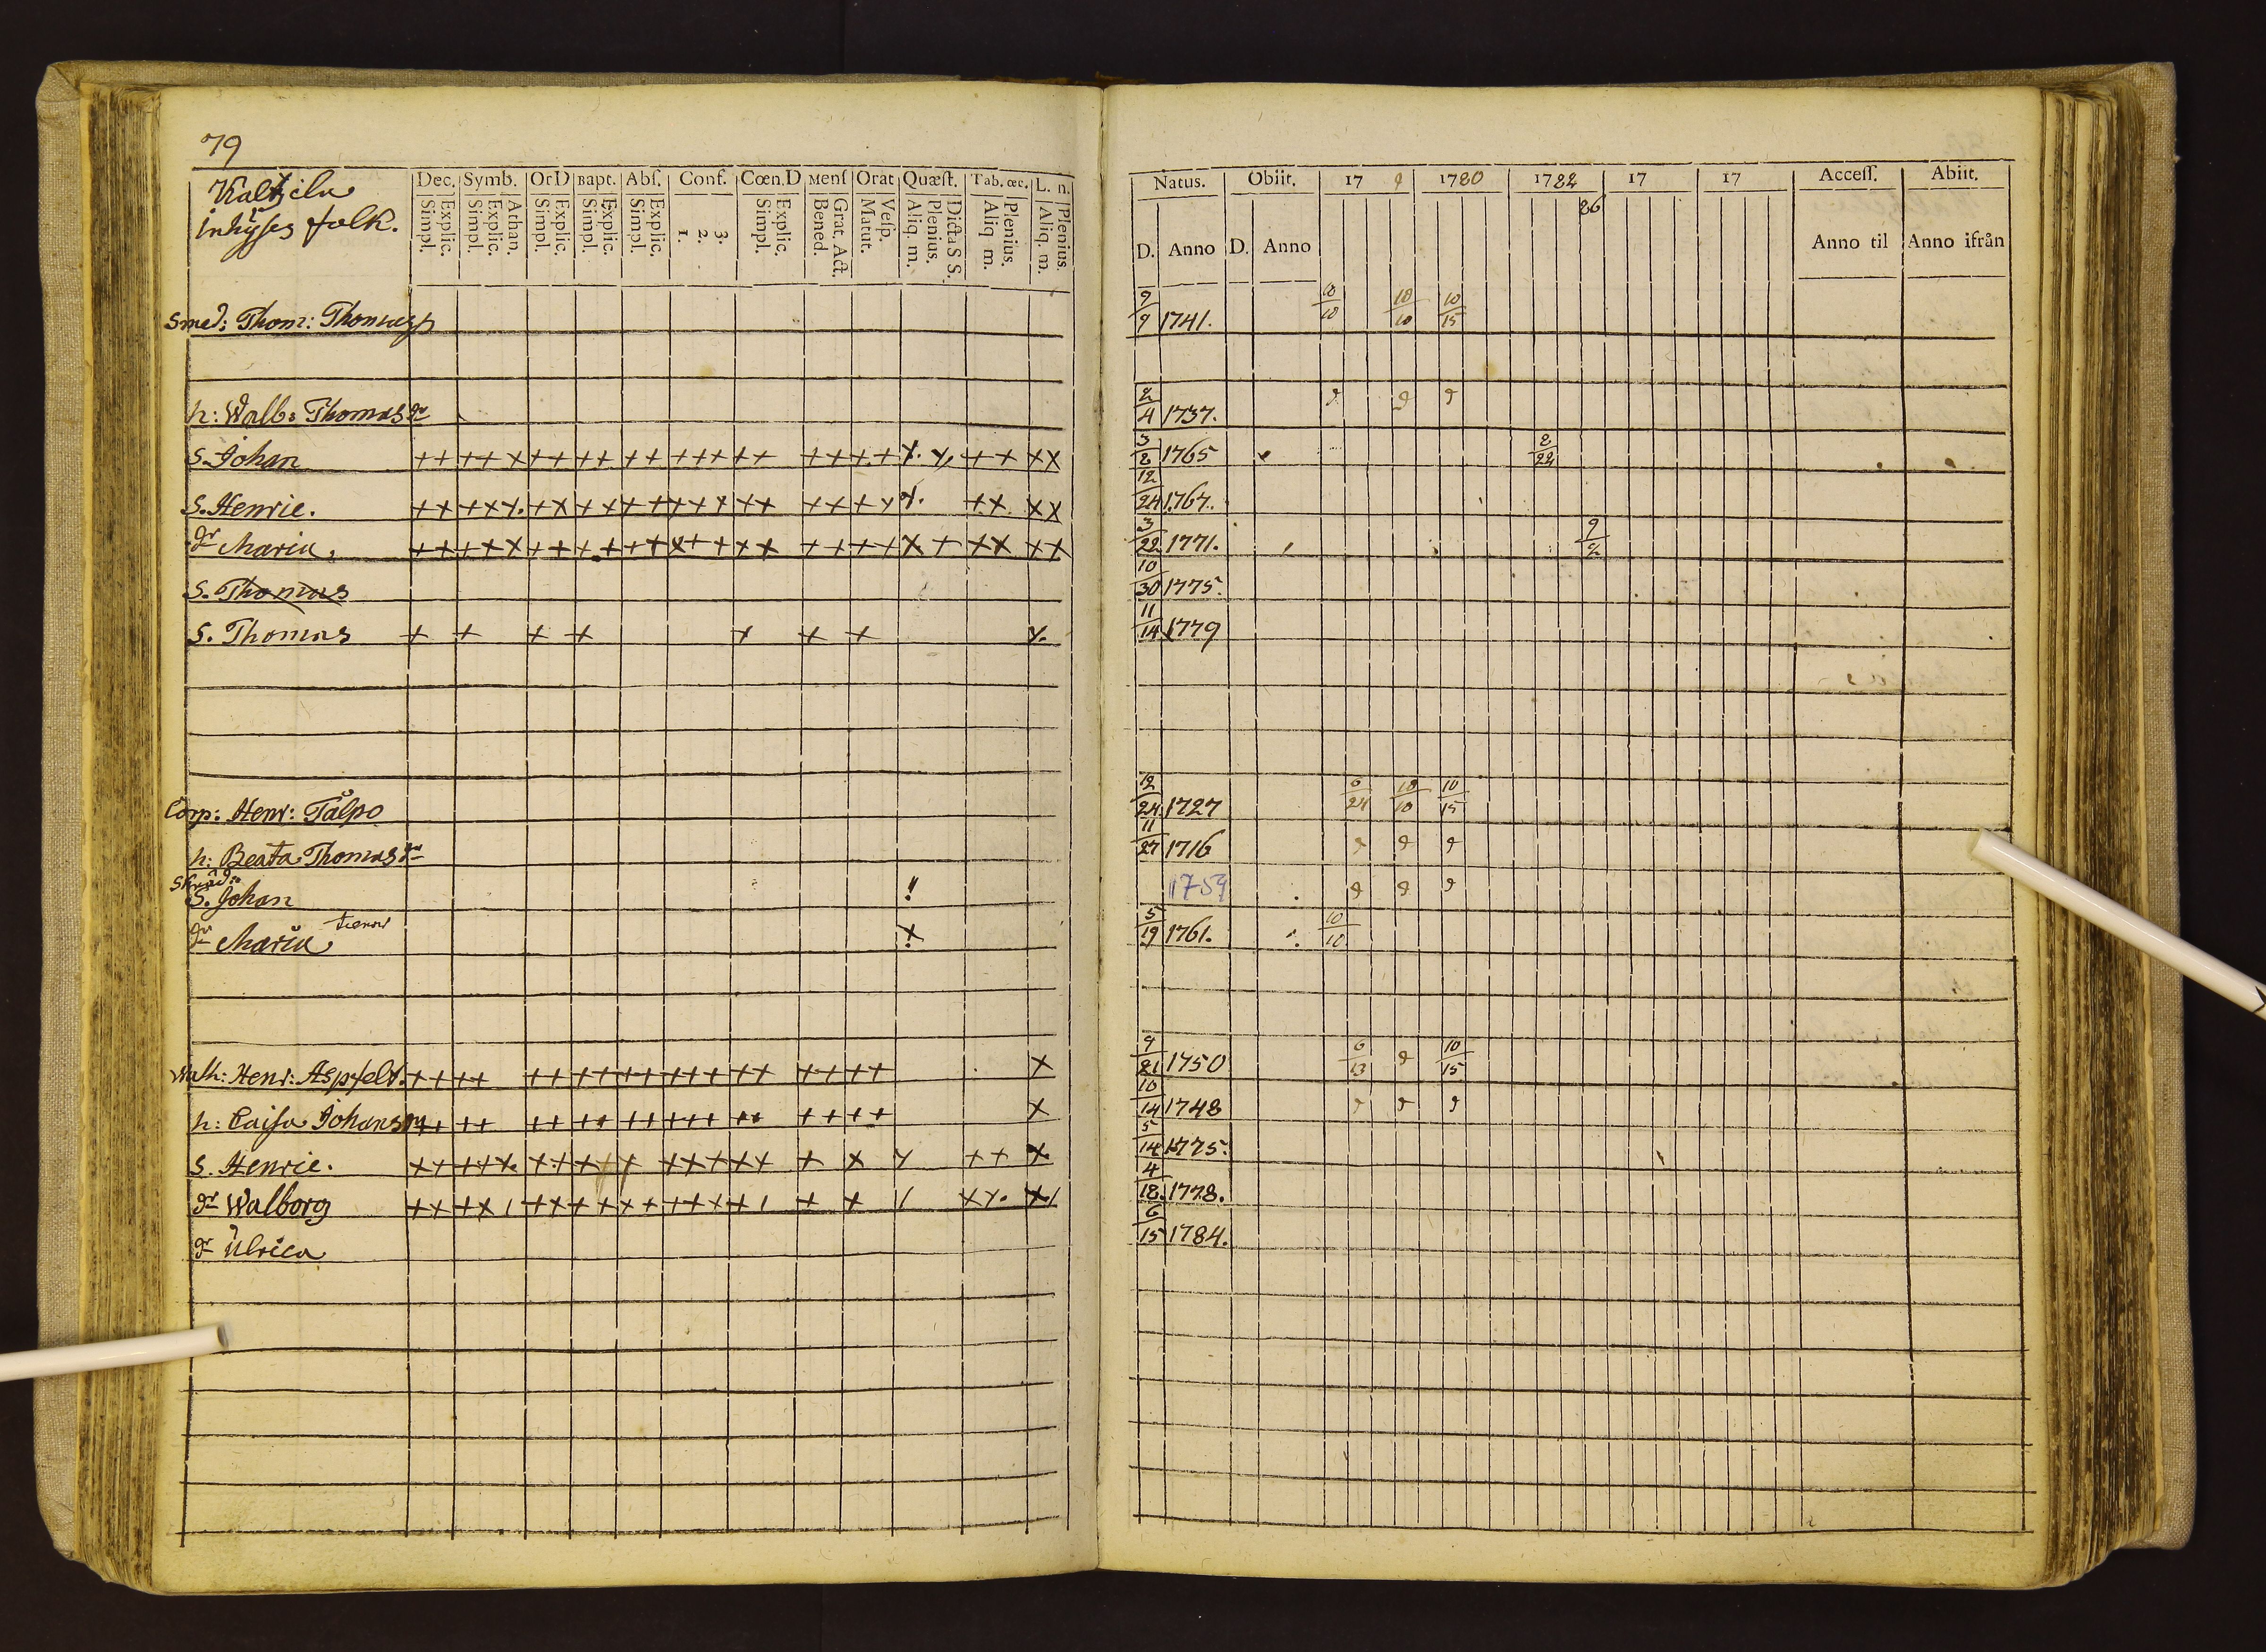 79
inhyses folk.
Dec. Symb. Or D Bapt. Abs. Conf. Cœn. D Mens Orat Quæst. Tab. œc. L. n.
Simpl. Explic. Simpl. Explic. Athan. Simpl. Explic. Simpl. Explic. Simpl. Explic. 1. 2. 3. Simpl. Explic. Bened. Grat. Act. Matut. Vesp. Aliq. m. Plenius. Dicta S S. Aliq m. Plenius. Aliq. m. Plenius.
Natus. Obiit. 17 9 1780 1782 17 17 Access. Abiit.
86
D. Anno D. Anno Anno til Anno ifrån
Smed: Thom: 9/9 1741. 10/10 10/10 10/15
h: Walb: Thomas dr 2/4 1737.
S. Johan 3/2 1765 2/22
S. Henric. 12/24 1767.
dr Maria 3/22 1771. 9/2
S. Thomas 10/30 1775.
S. Thomas 11/14 1779
Corp: Henr: Tålpo 12/24 1727 6/24 10/10 10/15
h: Beata Thomas dr 11/27 1716
S. Johan 1759
dr Maria 5/19 1761. 10/10
Henr: Aspfelt. 9/21 1750 6/13 10/15
h: Caisa Johans 10/14 1748
S. Henric. 5/14 1775.
dr Walborg 4/18. 1778.
dr Ulrica 6/15 1784.